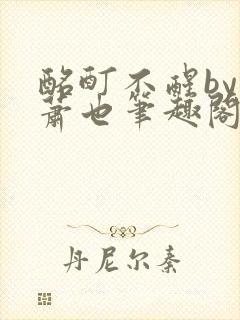 酩酊不醒by
萧也笔趣阁
丹尼尔秦